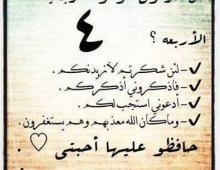 الأربعه ؟
٤
✓-لئن شكرتم لأزيدنكم.
✓-فاذكروني أذكركم.
✓-أدعوني استجب لكم.
✓-وماكان الله معذبهم وهم يستغفرون.
حافظو عليها أحبتي ♡.